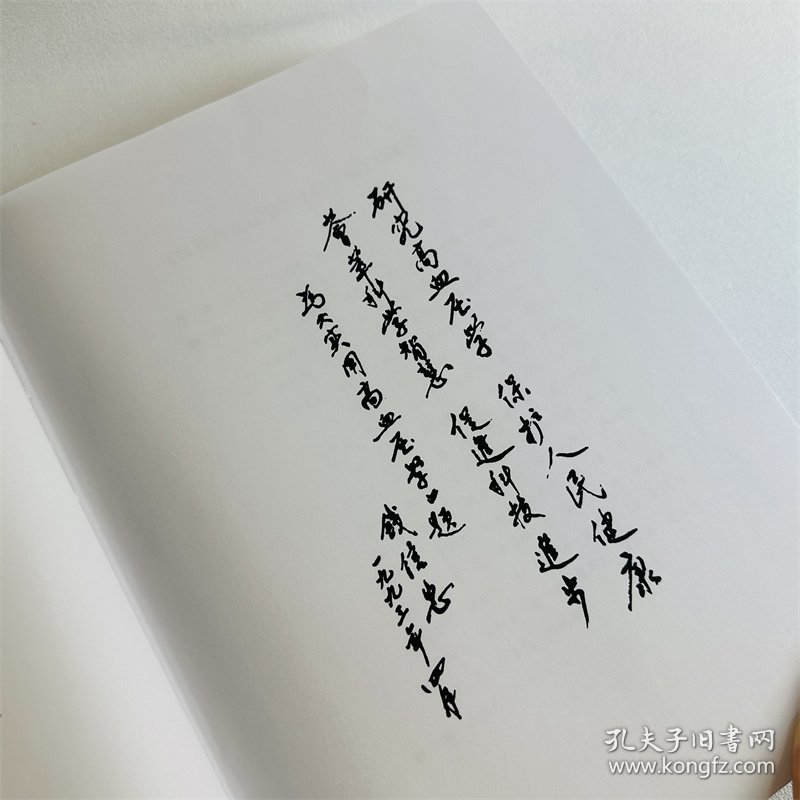 研究高血压学 保护人民健康
荟萃科学智慧 促進科技進步
为《实用高血压学》题
錢信忠
一九九三年四月
孔夫子旧书网
www.kongfz.com